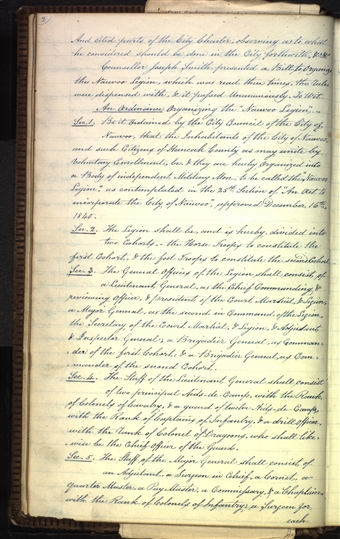 2
And cited parts of the City Charter, observing as to which
he considered should be done in the City forthwith, & Mr.
Counsellor Joseph Smith presented a Bill, to Organize
the Nauvoo Legion, which was read three times, the rules
were dispensed with, & it passed Unanimously, To Wit.
An Ordinance Organizing the "Nauvoo Legion".
Sec. 1. Be it Ordained by the City Council of the City of
Nauvoo, that the Inhabitants of the City of Nauvoo,
and such Citizens of Hancock County as may unite by
Voluntary Enrollment, be & they are hereby Organized into
a Body of independent Military Men, to be called the "Nauvoo
Legion", as contemplated in the 25th Section of "An Act to
incorporate the City of Nauvoo", approved December 16th
1840.
Sec. 2. The Legion shall be, and is hereby divided into
two Cohorts,- the Horse Troops to constitute the
first Cohort, & the foot Troops to constitute the second Cohort.
Sec. 3. The General Officers of the Legion shall consist of
a Lieutenant General, as the Chief Commanding &
reviewing Officer, & president of the Court Martial, & Legion,
a Major General, as the second in Command of the Legion,
the Secretary of the Court Martial, & Legion, & Adjutant
& Inspector General, a Brigadier General, as Comman-
-der of the first Cohort, & a Brigadier General, as Com-
-mander of the second Cohort.
Sec. 4. The Staff of the Lieutenant General shall consist
of two principal Aids-de-Camp, with the Rank
of Colonels of Cavalry, & a guard of twelve Aids-de-Camp,
with the Rank of Captains of Infantry, & a drill Officer,
with the Rank of Colonel of Dragoons, who shall like-
-wise be the Chief Officer of the Guard.
Sec. 5. The Staff of the Major General shall consist of
an Adjutant, a Surgeon in Chief, a Cornet, a
quarter Master, a Pay Master, a Commissary, & a Chaplain,
with the Rank of Colonels of Infantry; a Surgeon for
each